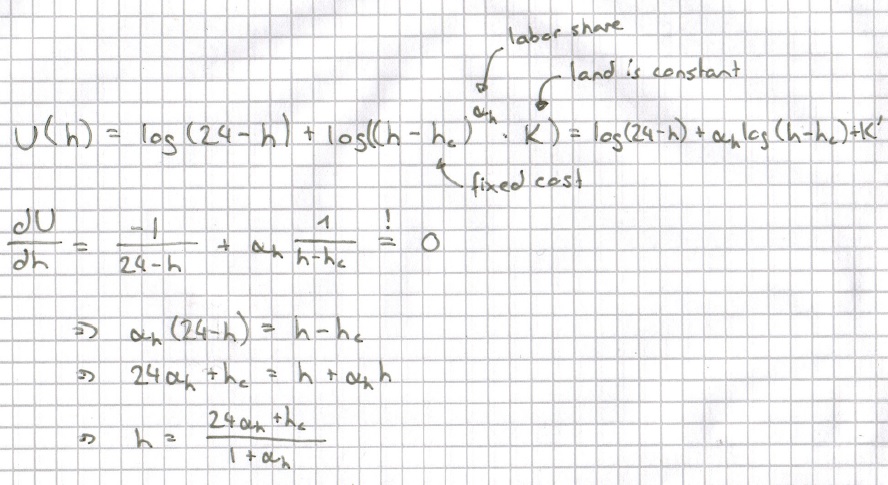 labor share
land is constant
U(h) = log(24-h) + log((h-h_c)^α_h · K) = log(24-h) + α_h log(h-h_c) + K'
fixed cost
dU/dh = -1/(24-h) + α_h 1/(h-h_c) =! 0
⇒ α_h (24-h) = h - h_c
⇒ 24α_h + h_c = h + α_h h
⇒ h = (24α_h + h_c)/(1 + α_h)